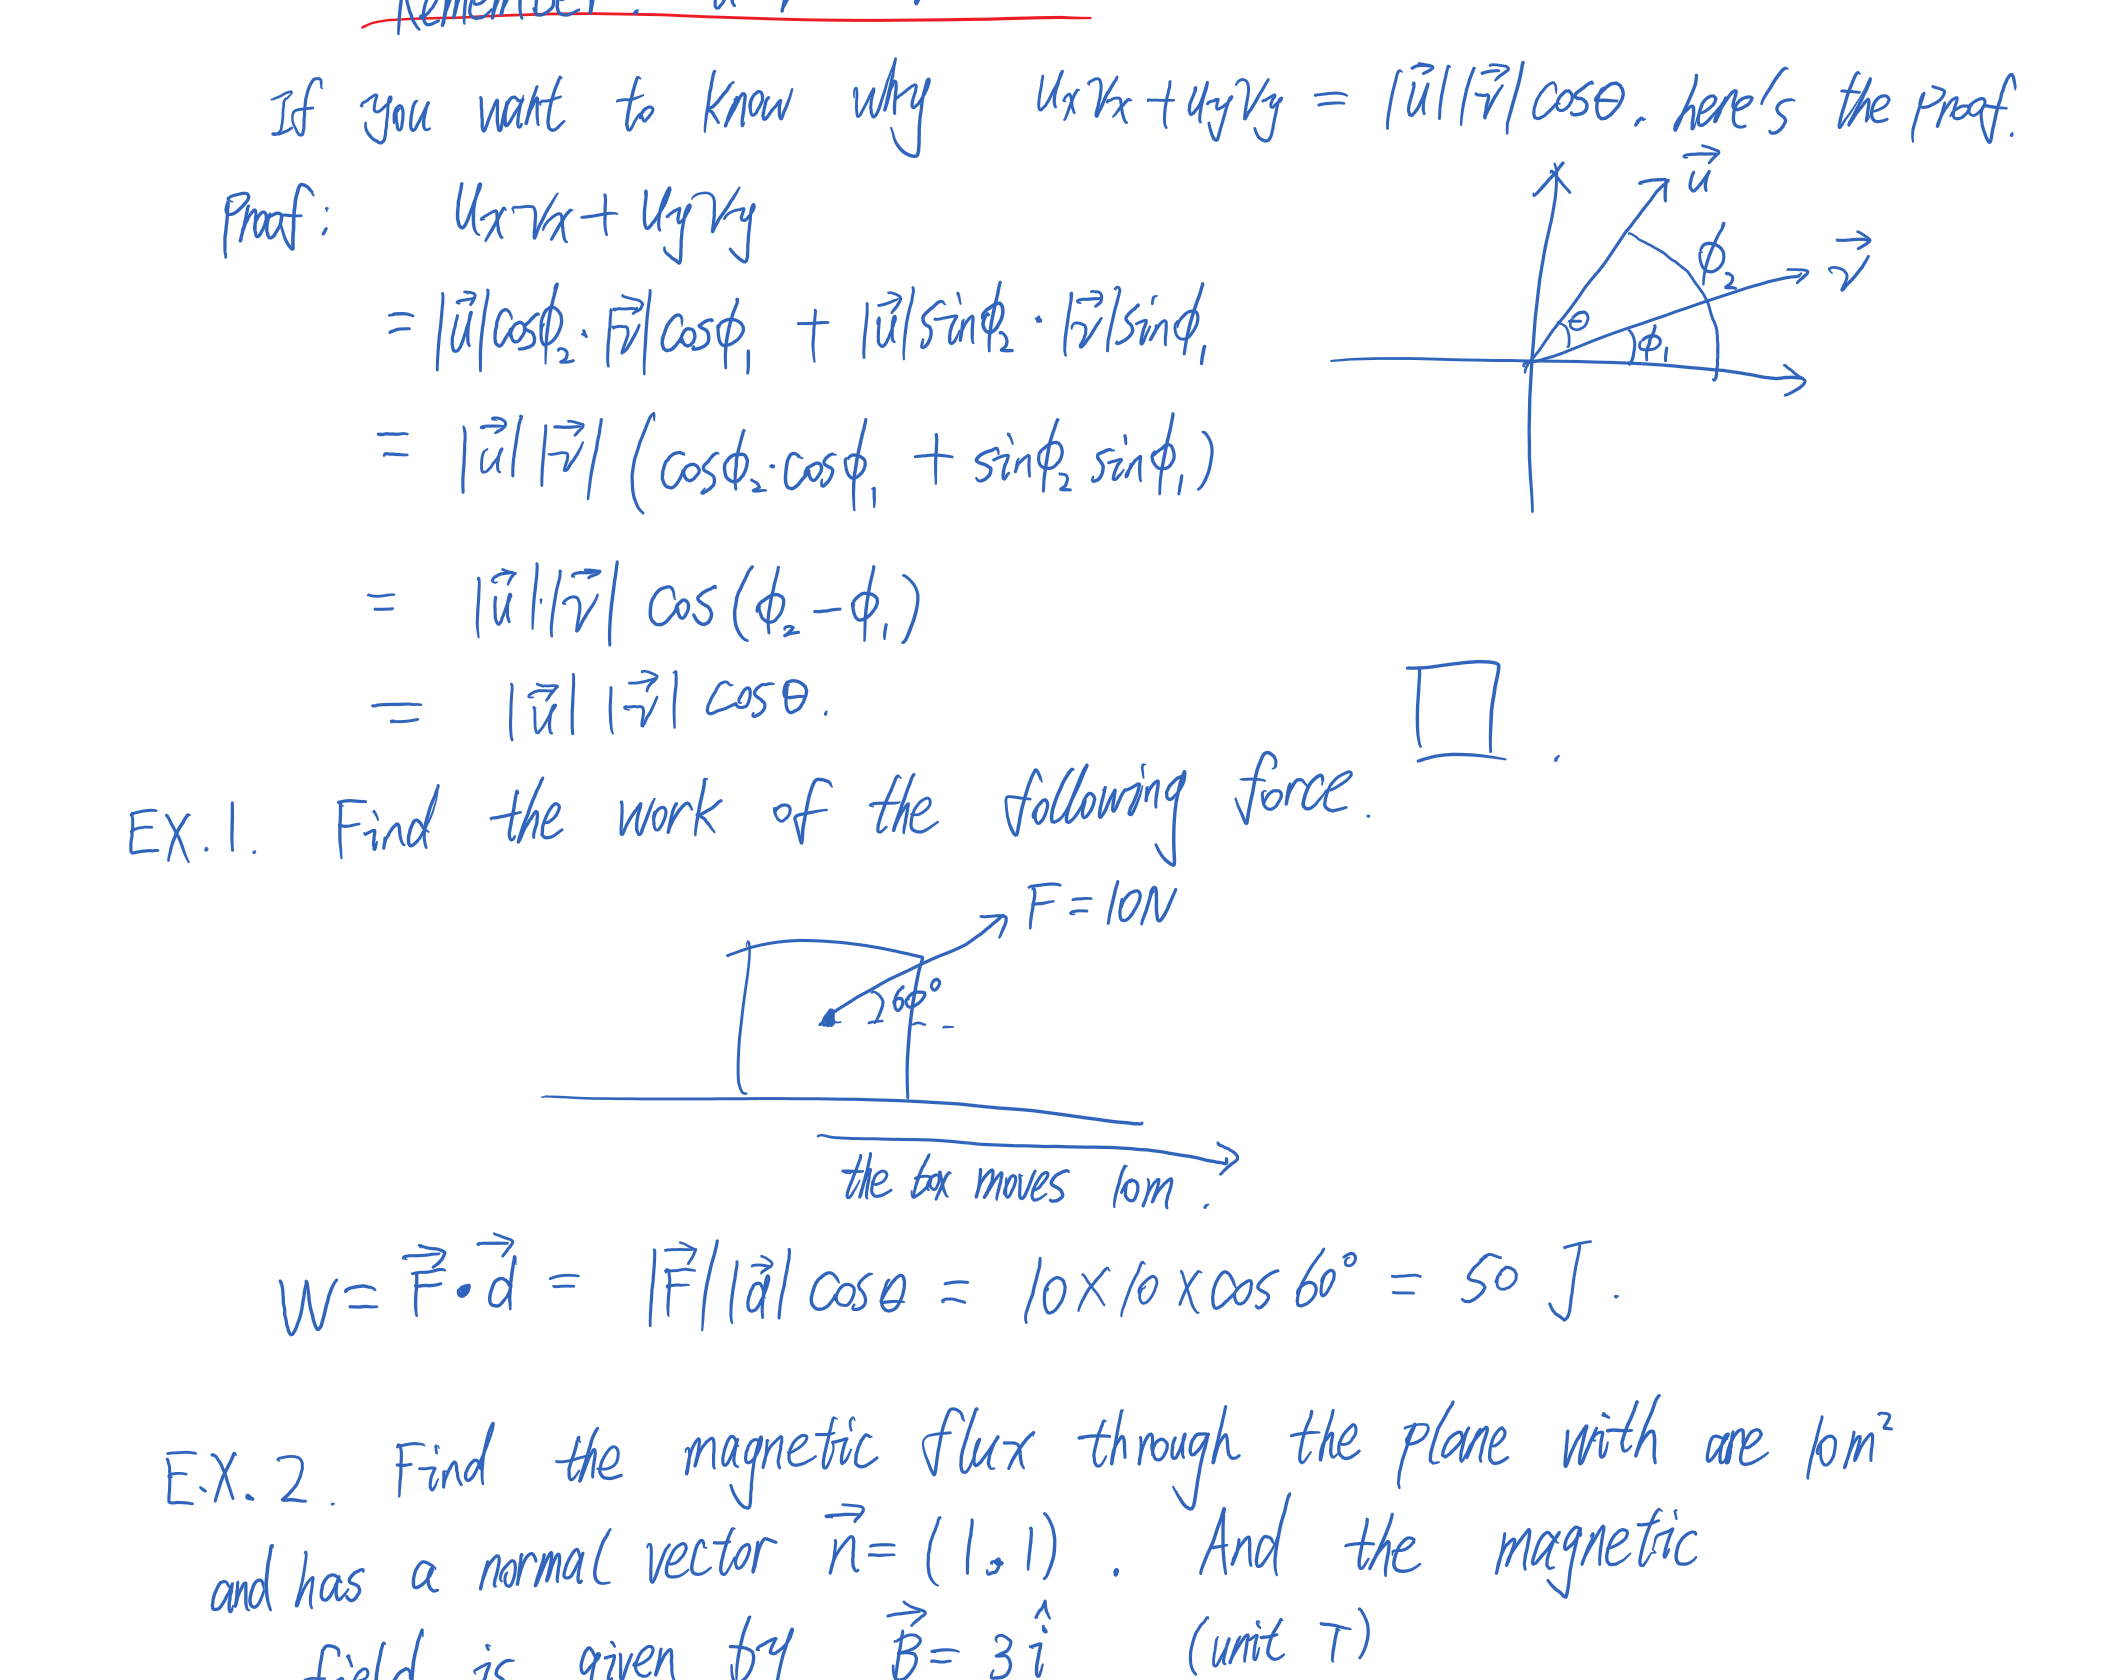 If you want to know why uxvx + uyvy = |u⃗||v⃗|cosθ. here's the proof.
Proof: uxvx + uyvy
u⃗
v⃗
ϕ₂
θ
ϕ₁
= |u⃗|cosϕ₂·|v⃗|cosϕ₁ + |u⃗|sinϕ₂·|v⃗|sinϕ₁
= |u⃗||v⃗|(cosϕ₂·cosϕ₁ + sinϕ₂ sinϕ₁)
= |u⃗|·|v⃗| cos(ϕ₂-ϕ₁)
= |u⃗||v⃗| cosθ.
□.
EX.1. Find the work of the following force.
F=10N
60°
the box moves 10m.
W = F⃗·d⃗ = |F⃗||d⃗|cosθ = 10×10×cos60° = 50 J.
EX.2. Find the magnetic flux through the plane with are 10m²
and has a normal vector n⃗=(1,1). And the magnetic
field is given by B⃗= 3î (unit T)